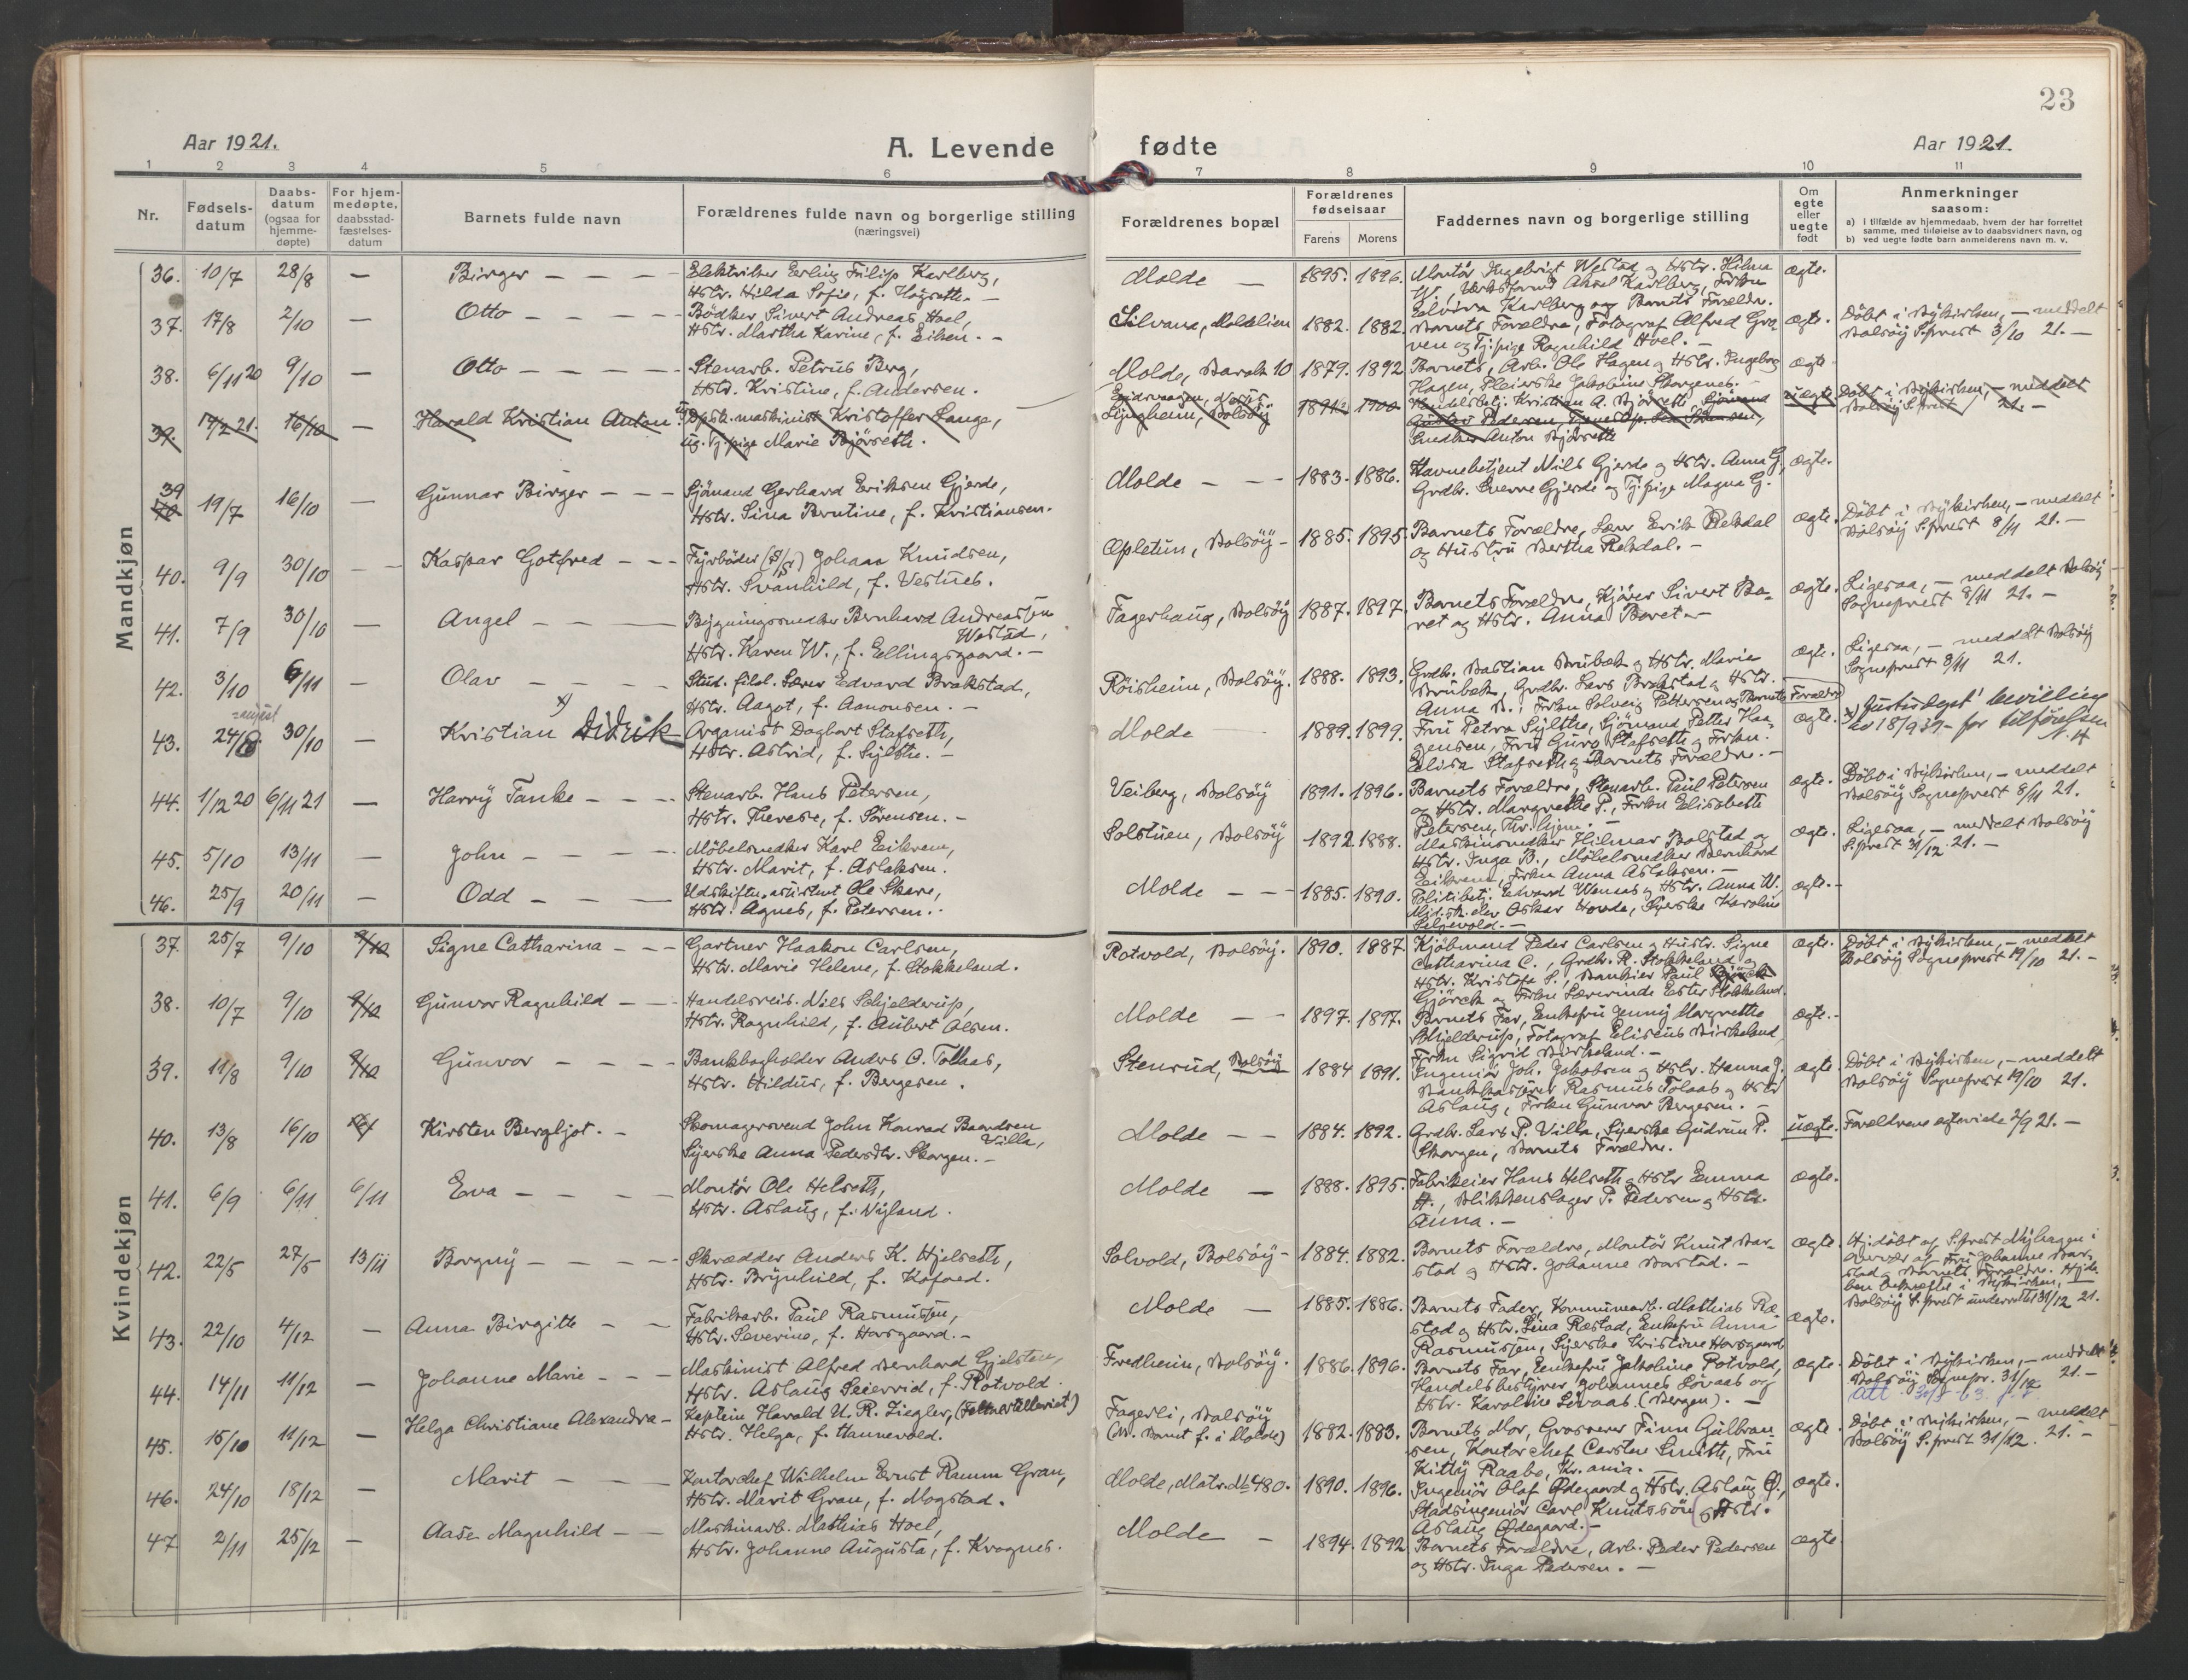 23
Aar 1921.
A. Levende
fødte
Aar 1921.
1 2 3 4 5 6 7 8 9 10 11
Nr.
Fødsels-
datum
Daabs-
datum
(ogsaa for
hjemme-
døpte)
For hjem-
medøpte,
daabsstad-
fæstelses-
datum
Barnets fulde navn
Forældrenes fulde navn og borgerlige stilling
(næringsvei)
Forældrenes bopæl
Forældrenes
fødselsaar
Farens Morens
Faddernes navn og borgerlige stilling
Om
egte
eller
uegte
født
Anmerkninger
saasom:
a) i tilfælde av hjemmedaab, hvem der har forrettet
samme, med tilføielse av to daabsvidners navn, og
b) ved uegte fødte barn anmelderens navn m. v.
Mandkjøn
36. 10/7 28/8 — Birger — — — —
Elektriker Erling Filip Karlberg,
Hstr. Hilda Sofie, f. Høgseth. —
Molde — 1895. 1896.
Montör Ingebrigt Westad og Hstr. Hilma
W., Verksformd Aksel Karlberg, Frkn
Elvira Karlberg og Barnets Forældre.
ægte.
37. 17/8 2/10 — Otto — — — —
Bødker Sivert Andreas Hoel,
Hstr. Martha Karine, f. Eiken. —
Silvana, Moldelien 1882. 1882.
Barnets Forældre, Fotograf Alfred Gro-
ven og Tj.pige Ragnhild Hoel. —
ægte.
Döbt i Nykirken, — meddelt
Bolsöy S.prest 3/10 21. —
38. 6/11 20 9/10 — Otto — — — —
Stenarb. Petrus Berg,
Hstr. Kristine, f. Andersen.
Molde, Barak 10 1879. 1892
Barnets, Arb. Ole Hagen og Hstr. Ingeborg
Hagen, Pleierske Jakobine Skorgenes. —
ægte
39. 17/2 21. 16/10 — Harald Kristian Anton
Dpsk. maskinist Kristoffer Lange,
ug. Tj.pige Marie Bjørseth.
Eidsvaagen, Nesset
Lyngheim, Bolsöy
1891. 1900.
Handelsbetj. Kristian A. Bjørseth, Sjømand
Gustav Pedersen,
Snedker Anton Bjørseth
uægte
Döbt i Nykirken, — meddelt
Bolsöy S.prest 21. —
39
40 19/7 16/10 — Gunnar Birger — — —
Sjömand Gerhard Eriksen Gjerde,
Hstr. Sina Berntine, f. Kristiansen.
Molde — — — 1883. 1886.
Havnebetjent Nils Gjerde og Hstr. Anna G.,
Grdbr. Sverre Gjerde og Tj.pige Magna G.
ægte.
40. 9/9 30/10 — — Kaspar Gotfred — — —
Fyrböder (D/S) Johan Knudsen,
Hstr. Svanhild, f. Vestnes.
Øpletun, Bolsöy — 1885. 1895.
Barnets Forældre, Lærer Erik Rekdal
og Hustru Bertha Rekdal. —
ægte.
Döbt i Nykirken, — meddelt
Bolsöy S.prest 8/11 21. —
41. 7/9 30/10 — Angel — — —
Bygningssnedker Bernhard Andreassen
Westad,
Hstr. Karen W., f. Ellingsgaard. —
Fagerhaug, Bolsöy 1887. 1897.
Barnets Forældre, Kjører Sivert Bo-
ret og Hstr. Anna Boret —
ægte.
Ligesaa, — meddelt Bolsöy
Sogneprest 8/11 21. —
42. 3/10 6/11 — Olav — — — —
Stud. filol. Lærer Edvard Brakstad,
Hstr. Aagot, f. Aanonsen. —
Röisheim, Bolsöy. 1888. 1893.
Grdbr. Bastian Strubek og Hstr. Marie
Strubek, Grdbr. Lars Brakstad og Hstr.
Anna B., Frkn Solveig Pettersen og Barnets Forældre
ægte.
Ligesaa, — meddelt Bolsöy
Sogneprest 8/11 21.
43. =august 24/8 30/10 — Kristian x) Didrik
Organist Dagbart Stafseth,
Hstr. Astrid, f. Sylthe. —
Molde — 1889. 1899.
Fru Petra Sylthe, Sjömand Petter Haa-
gensen, Fru Guro Stafseth og Frkn.
Elisa Stafseth og Barnets Forældre. —
ægte.
x) Justisdept' bevilling
av 18/9 39 — for tilførelsen
44. 1/12 20 6/11 21 — Harry Tanke — — —
Stenarb. Hans Petersen,
Hstr. Therese, f. Sörensen. —
Veiberg, Bolsöy 1891. 1896.
Barnets Forældre, Stenarb. Paul Petersen
og Hstr. Margrethe P., Frkn Elisabeth
Petersen, Thr.hjem. —
ægte.
Döbt i Nykirken, — meddelt
Bolsöy Sogneprest 8/11 21.
45. 5/10 13/11 — John — — — —
Möbelsnedker Karl Eikrem,
Hstr. Marit, f. Aslaksen.
Solstuen, Bolsöy 1892. 1888.
Maskinsnedker Hilmar Bolstad og
Hstr. Inga B., Möbelsnedker Bernhard
Eikrem, Frkn Anna Aslaksen. —
ægte.
Ligesaa, — meddelt Bolsöy
S.prest 31/12 21. —
46. 25/9 20/11 — Odd — — —
Udskiftn.assistent Ole Skare,
Hstr. Agnes, f. Petersen.
Molde — — — 1885. 1890.
Politibetj. Edvard Wenaas og Hstr. Anna W.,
Mid.sk. elev Oskar Hovde, Syerske Karoline
Seljevold. —
ægte. —
Kvindekjøn
37. 25/7 9/10 9/10 Signe Catharina — — —
Gartner Haakon Carlsen,
Hstr. Marie Helene, f. Stokkeland.
Rotvold, Bolsöy. 1890. 1887.
Kjöbmand Peder Carlsen og Hustr. Signe
Catharina C., Grdbr. R. Stokkeland og
Hstr. Kristofa S., Bankier Paul
Gjörck og Frkn Lærerinde Ester Stokkeland.
ægte.
Döbt i Nykirken, — meddelt
Bolsöy Sogneprest 19/10 21. —
38. 10/7 9/10 9/10 Gunvor Ragnhild — — —
Handelsreis. Nils Schjelderup,
Hstr. Ragnhild, f. Aubert Olsen.
Molde — — 1897. 1897.
Barnets Far, Enkefru Jenny Margrethe
Schjelderup, Fotograf Eliseus Birkeland,
Frkn Sigrid Birkeland. —
ægte. —
39. 11/8 9/10 9/10 Gunvor — — — —
Bankbogholder Anders O. Tollaas,
Hstr. Hildur, f. Bergesen.
Stenrud, Bolsöy 1884 1891.
Ingeniör Joh. Jakobsen og Hstr. Hanna J.
Bankkasserer Rasmus Tolaas og Hstr
Aslaug, Frkn Gunvor Bergesen. —
ægte.
Döbt i Nykirken, — meddelt
Bolsöy Sogneprest 19/10 21.
40. 13/8 16/10 Kirsten Bergljot. —
Skomagersvend John Konrad Baardsen
Villa,
Syerske Anna Pedersdtr. Skorgen. —
Molde — — 1884. 1892.
Grdbr. Lars P. Villa, Syerske Gudrun P.
Skorgen, Barnets Forældre.
uægte.
Forældrene egteviede 2/9 21. —
41. 6/9 6/11 6/11 Eva — — — —
Montör Ole Helseth,
Hstr. Aslaug, f. Nyland.
Molde — 1888. 1895.
Fabrikeier Hans Helseth og Hstr Emma
H., Blikkenslager P. Pedersen og Hstr.
Anna. —
ægte.
42. 22/5 27/5 13/11 Borgny — — — —
Skrædder Anders K. Hjelseth,
Hstr. Brynhild, f. Kofoed.
Solvold, Bolsöy — 1884. 1882.
Barnets Forældre, Montör Knut Bar-
stad og Hstr. Johanne Barstad. —
ægte.
Hj.döbt af S.prest Nyhagen i
nærvær af Fru Johanne Bar-
stad og Barnets Forældre. Hjd.
ben bekræftet i Nykirken, —
Bolsöy S.prest underrettet 31/12 21.
43. 22/10 4/12 — Anna Birgitte — —
Fabrikarb. Paul Rasmussen,
Hstr. Severine, f. Horsgaard. —
Molde — 1885. 1886.
Barnets Fader, Kommunearb. Mathias Ræ-
stad og Hstr. Lina Ræstad, Enkefru Anna
Rasmussen, Syerske Kristine Horsgaard
ægte.
44. 14/11 11/12 — Johanne Marie — — —
Maskinist Alfred Bernhard Gjelsten,
Hstr. Aslaug Seierrid, f. Rotvold.
Fredheim, Bolsöy. 1886. 1896.
Barnets Far, Enkefru Jakobine Rotvold,
Handelsbestyrer Johannes Lövaas og
Hstr. Karoline Lövaas. (Bergen). —
ægte.
Döbt i Nykirken, — meddelt
Bolsöy Sognepr. 31/12 21. —
Att.
45. 15/10 11/12 — Helga Christiane Alexandra —
Kaptein Harald U. R. Ziegler, (Feltartilleriet)
Hstr. Helga, f. Hannevold.
Fagerli, Bolsöy
(N. Barnet f. i Molde) 1882. 1883.
Barnets Mor, Grosserer Finn Gulbran-
sen, Kontorchef Carsten Smith, Fru
Kitty Raabe, Kr.ania. —
ægte.
Döbt i Nykirken, — meddelt
Bolsöy S.prest 31/12. 21. —
46. 24/10 18/12 — Marit — — —
Kontorchef Wilhelm Ernst Ramm Gran,
Hstr. Marit Gran, f. Mogstad.
Molde, Matr. No 480. 1890. 1896.
Ingeniör Olaf Ødegaard og Hstr. Aslaug Ø.,
Stadsingeniör Carl Knutssön og Hstr.
Aslaug Ødegaard. —
ægte.
47 2/11 25/12 — Aase Magnhild — —
Maskinarb. Mathias Hoel,
Hstr. Johanne Augusta, f. Kvognes.
Molde — 1894. 1892
Barnets Forældre, Arb. Peder Pedersen
og Hstr. Inga Pedersen. —
ægte